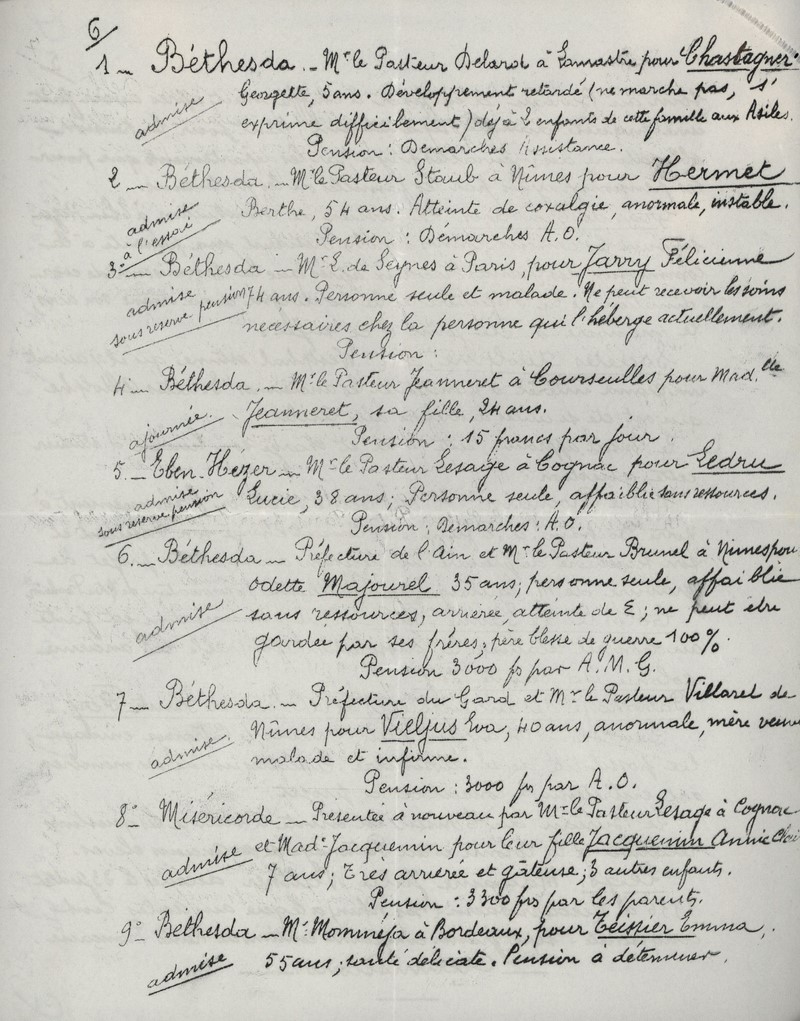 6
1_ Béthesda. _ Mr le Pasteur Delard à Lamastre pour Chastagner
Georgette, 5 ans. Développement retardé (ne marche pas, s'
admise
exprime difficilement) déjà 2 enfants de cette famille aux Asiles.
Pension : Démarches Assistance.
2 _ Béthesda. _ Mr le Pasteur Staub à Nîmes pour Hermet
admise à l'essai
Berthe, 54 ans. Atteinte de coxalgie, anormale, instable.
Pension : Démarches A.O.
3°_ Béthesda _ Mr E. de Seynes à Paris, pour Jarry Félicienne
admise
sous reserve pension
74 ans. Personne seule et malade. Ne peut recevoir les soins
nécessaires chez la personne qui l'héberge actuellement.
Pension :
4 _ Béthesda. _ Mr le Pasteur Jeanneret à Courseulles pour Mad.lle
ajournée.
Jeanneret, sa fille, 24 ans.
Pension : 15 francs par jour.
5._ Eben-Hézer _ Mr le Pasteur Lesage à Cognac pour Ledru
admise
sous reserve pension
Lucie, 38 ans; Personne seule, affaiblie sans ressources.
Pension : Démarches : A.O.
6._ Béthesda _ Préfecture de l'Ain et Mr le Pasteur Brunel à Nîmes pou
Odette Majourel 35 ans; personne seule, affaiblie
admise
sans ressources, arriérée, atteinte de E; ne peut être
gardée par ses frères, père blessé de guerre 100%.
Pension 3000 frs par A.M.G.
7 _ Béthesda. _ Préfecture du Gard et Mr le Pasteur Villaret de
Nîmes pour Vieljus Eva, 40 ans, anormale, mère veuve
admise.
malade et infirme.
Pension : 3000 frs par A.O.
8°_ Miséricorde _ Présentée à nouveau par Mr le Pasteur Lesage à Cognac
et Made Jacquemin pour leur fille Jacquemin Annie
admise
7 ans; Très arriérée et gâteuse; 3 autres enfants.
Pension : 3300 frs par les parents.
9°_ Béthesda _ Mr Momméja à Bordeaux, pour Teissier Emma,
admise
55 ans; santé délicate. Pension à déterminer.